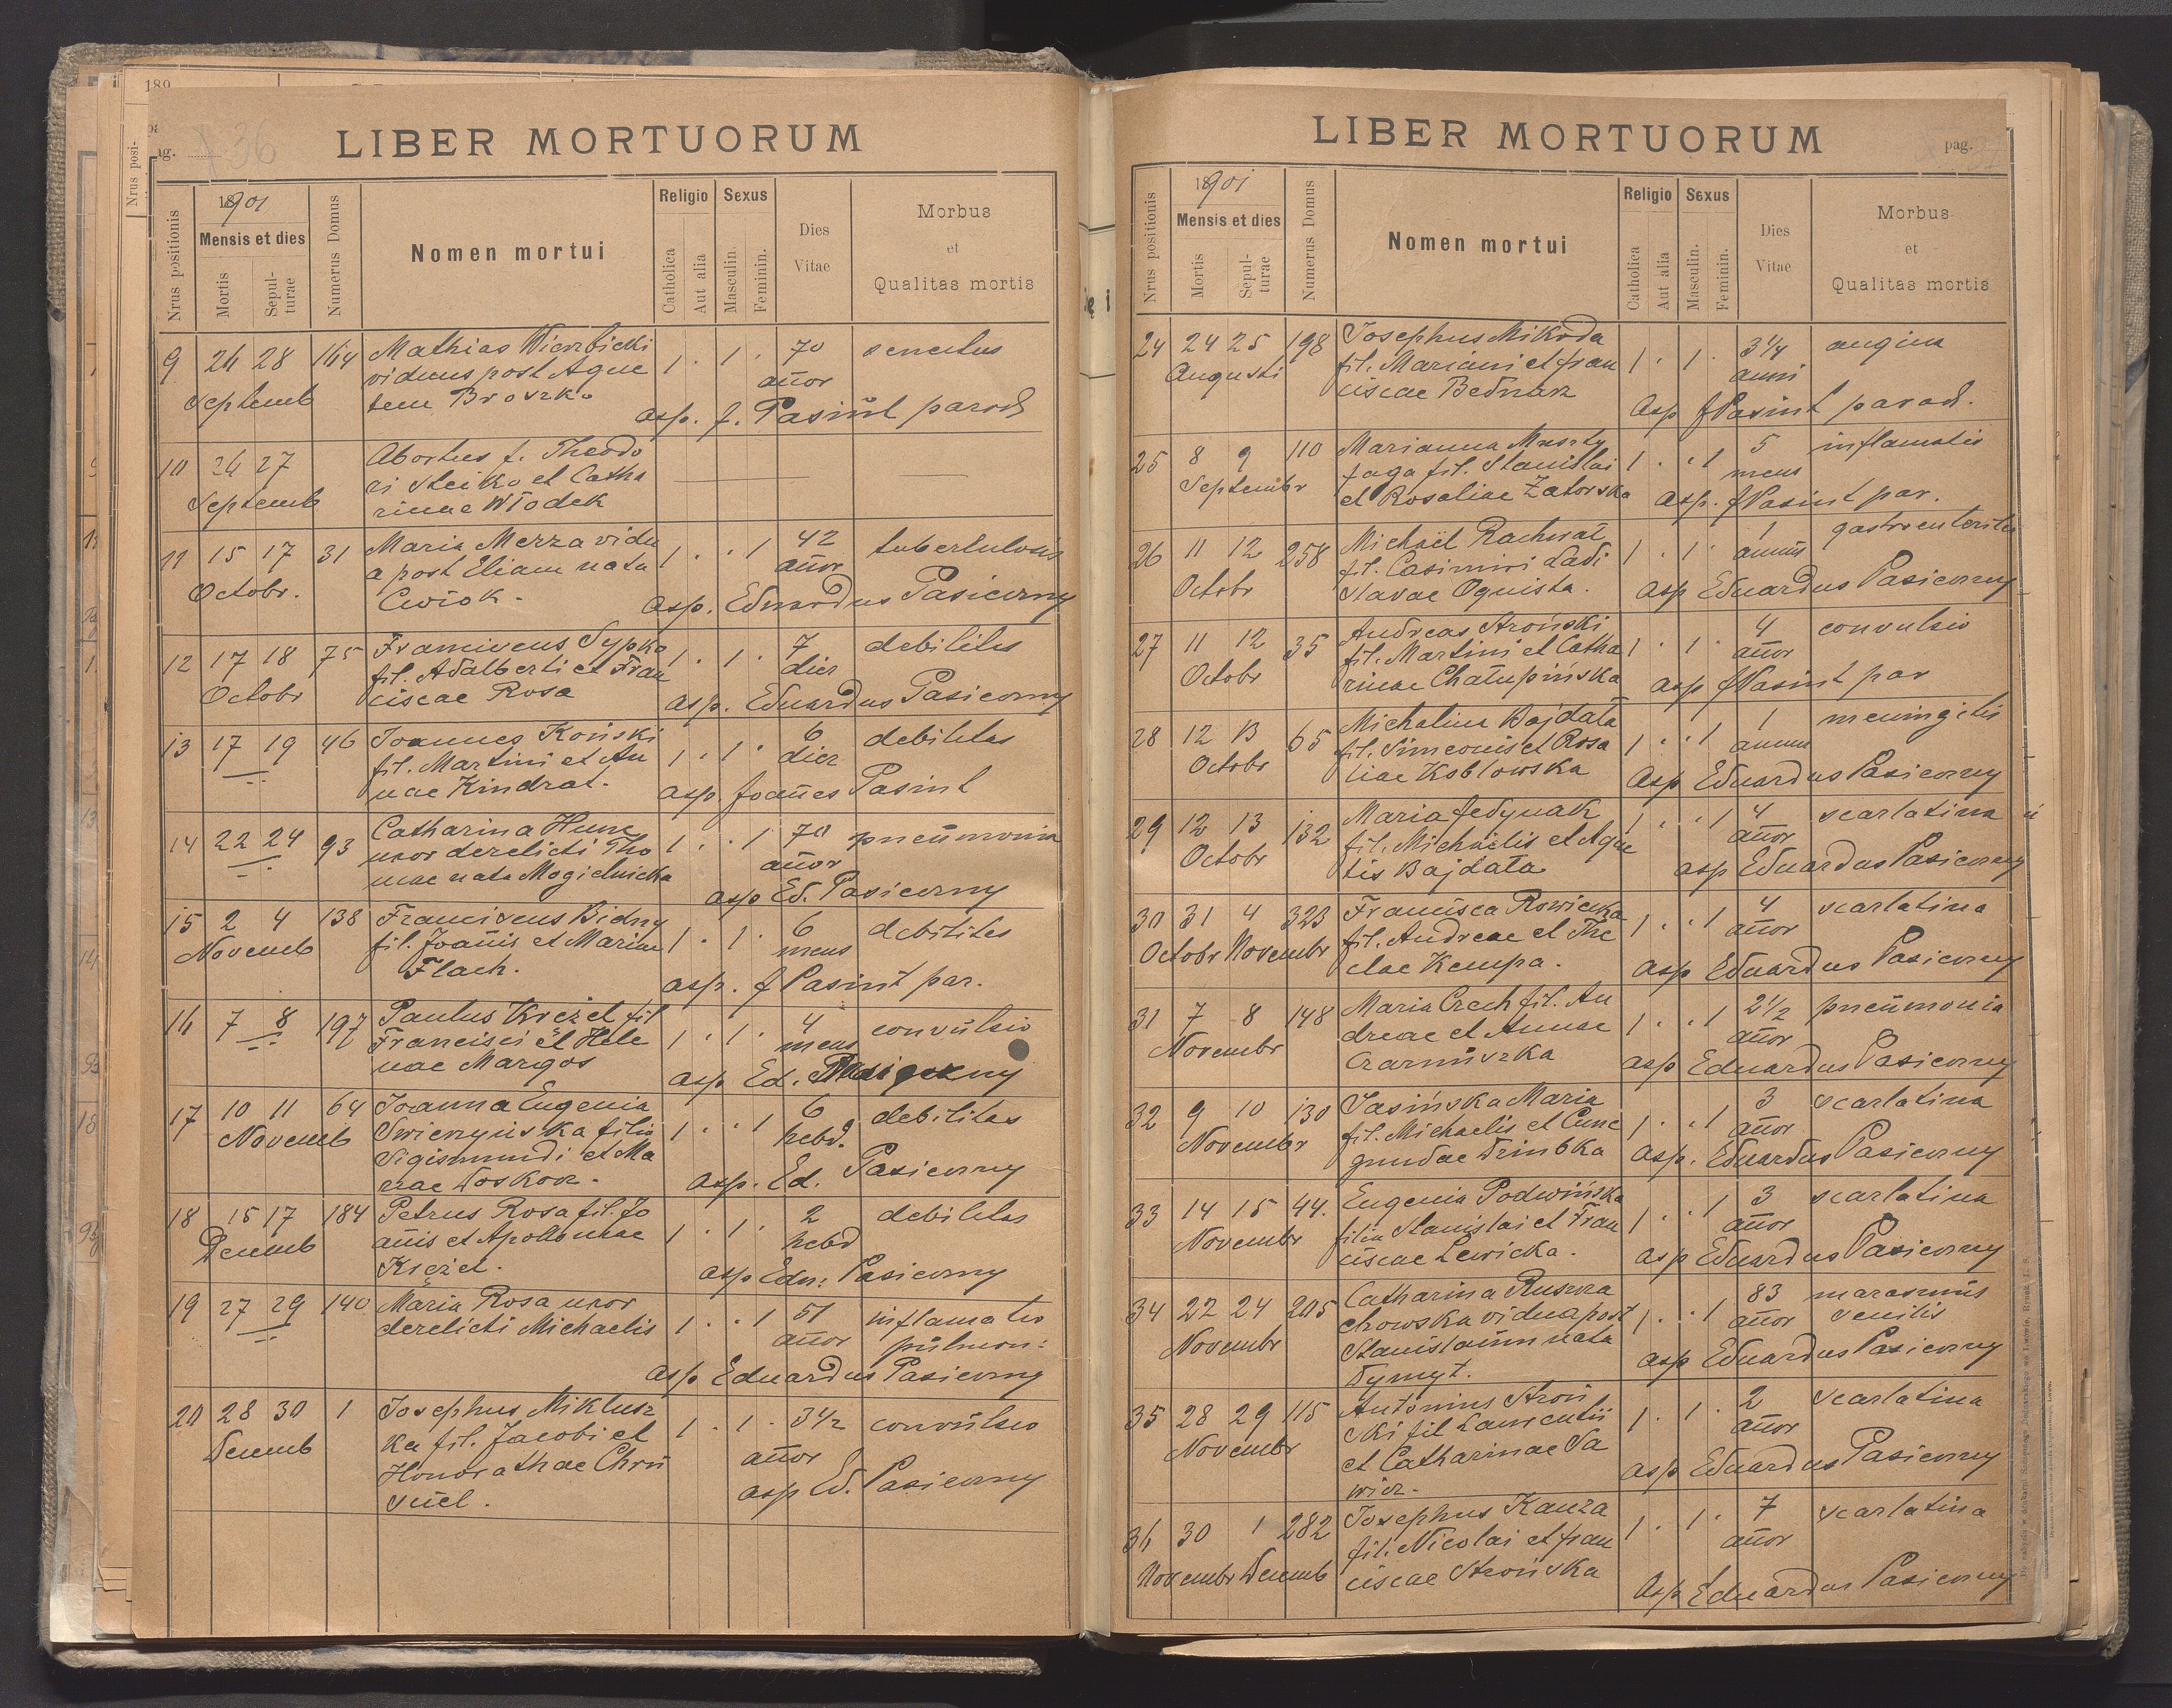 189
Nrus posi-
pag. 36
LIBER MORTUORUM
Nrus positionis
1901
Mensis et dies
Mortis
Sepul-
turae
Numerus Domus
Nomen mortui
Religio
Catholica
Aut alia
Sexus
Masculin.
Feminin.
Dies
Vitae
Morbus
et
Qualitas mortis
9 26 28 164 Mathias Wierzbicki 1 . 1 . 70 senectus
Septemb viduus post Agne añor
tem Broszko asp. J. Pasińt paroch
10 26 27 Abortus f. Theodo
Septemb ri Steiko et Catha
rinae Włodek
11 15 17 31 Maria Merza vidu 1 . . 1 42 tuberkulosis
Octobr. a post Eliam nata añor
Cwiok. asp. Eduardus Pasieczny
12 17 18 75 Franciscus Sypko 1 . 1 . 7 debilitas
Octobr fil. Adalberti et Fran dier
ciscae Rosa asp. Eduardus Pasieczny
13 17 19 46 Joannes Koński 1 . 1 . 6 debilitas
fil. Martini et An dier
nae Kindrat. asp. Joañes Pasint
14 22 24 93 Catharina Hunc 1 . . 1 70 pneumonia
uxor derelicti Tho añor
mae nata Mogielnicka asp Ed. Pasieczny
15 2 4 138 Franciscus Bidny 1 . 1 . 6 debilitas
Novemb fil. Joañis et Mariae mens
Flach. asp. J Pasint par.
16 7 8 197 Paulus Krężel fil 1 . 1 . 4 convulsio
Francisci et Hele mens
nae Margos asp Ed. Pasieczny
17 10 11 64 Joanna Eugenia 1 . . 1 6 debilitas
Novemb Swierzyńska filia hebd.
Sigismundi et Ma
riae Doskocz. asp. Ed. Pasieczny
18 15 17 184 Petrus Rosa fil. Jo 1 . 1 . 2 debilitas
Decemb añis et Apolloniae hebd
Krężel. asp Edu: Pasieczny
19 27 29 140 Maria Rosa uxor 1 . . 1 51 inflamatio
derelicti Michaelis añor pulmon:
asp Eduardus Pasieczny
20 28 30 1 Josephus Miklusz 1 . 1 . 3 1/2 convulsio
Decemb ka fil. Jacobi et añor
Honorathae Chru
sciel. asp Ed. Pasieczny
LIBER MORTUORUM
pag.
Nrus positionis
1901
Mensis et dies
Mortis
Sepul-
turae
Numerus Domus
Nomen mortui
Religio
Catholica
Aut alia
Sexus
Masculin.
Feminin.
Dies
Vitae
Morbus
et
Qualitas mortis
24 24 25 198 Josephus Mikoda 1 . 1 . 3 1/4 angina
Augusti fil. Mariani et Fran anni
ciscae Bednarz asp J Pasint paroch.
25 8 9 110 Marianna Muszty 1 . . 1 5 inflamatio
Septembr faga fil. Stanislai mens
et Rosaliae Zatorska asp. J Pasint par.
26 11 12 258 Michaël Rachwał 1 . 1 . 1 gastroenteritis
Octobr fil. Casimiri Ladi annus
slavae Ognista. asp Eduardus Pasieczny
27 11 12 35 Andreas Stroński 1 . 1 . 4 convulsio
Octobr fil. Martini et Catha añor
rinae Chałupińska asp J Pasint par
28 12 13 65 Michalina Bajdała 1 . . 1 1 meningitis
Octobr fil. Simeonis et Rosa annus
liae Kobłowska asp Eduardus Pasieczny
29 12 13 132 Maria Jedynak 1 . . 1 4 scarlatina
Octobr fil. Michaëlis et Agne añor
tis Bajdała asp Eduardus Pasieczny
30 31 4 323 Francisca Rowicka 1 . . 1 4 scarlatina
Octobr Novembr fil. Andreae et The añor
clae Kempa. asp Eduardus Pasieczny
31 7 8 148 Maria Czech fil. An 1 . . 1 2 1/2 pneumonia
Novembr dreae et Annae añor
Czarnuszka asp Eduardus Pasieczny
32 9 10 130 Jasińska Maria 1 . . 1 3 scarlatina
Novembr fil. Michaelis et Cune añor
gundae Dziubka asp. Eduardus Pasieczny
33 14 15 44. Eugenia Podwińska 1 . . 1 3 scarlatina
Novembr filia Stanislai et Fran añor
ciscae Lewicka. asp Eduardus Pasieczny
34 22 24 205 Catharina Rusza 1 . . 1 83 marasmus
Novembr chowska vidua post añor senilis
Stanislaum nata
Dymyt. asp Eduardus Pasieczny
35 28 29 115 Antonius Stroń 1 . 1 . 2 scarlatina
Novembr ski fil Laurentii añor
et Catharinae Sa
wicz. asp Eduardus Pasieczny
36 30 1 282 Josephus Kanza 1 . 1 . 7 scarlatina
Novembr Decemb fil. Nicolai et Fran añor
ciscae Strońska asp Eduardus Pasieczny